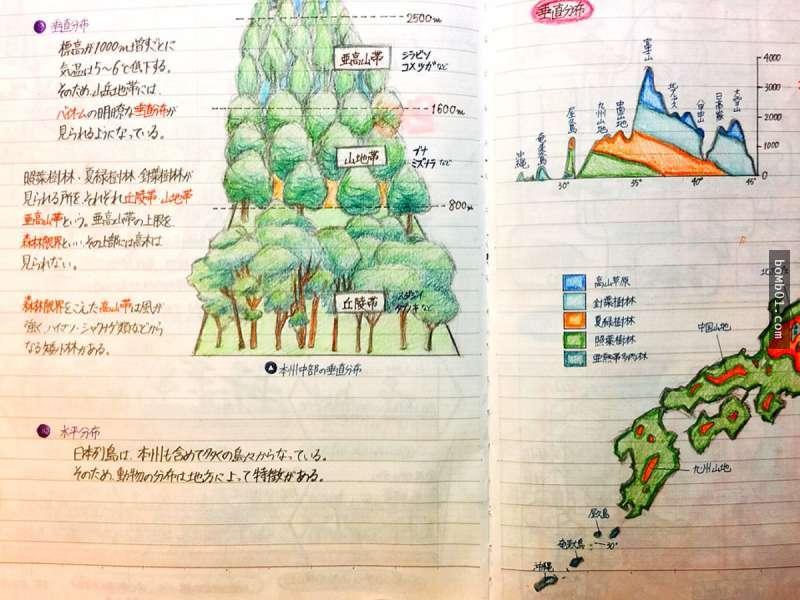 垂直分布
標高が1000m増すごとに
気温は5~6°と低下する。
そのため、山岳地帯には、
バイオームの明瞭な垂直分布が
見られるようになっている。
照葉樹林・夏緑樹林・針葉樹林が
見られる所を、それぞれ丘陵帯・山地帯
亜高山帯という。亜高山帯の上限を
森林限界といい、その上部には高木は
見られない。
森林限界をこえた高山帯は風が
強く、ハイマツ・シャクナゲ類などから
なる矮小林がある。
2500m
亜高山帯
シラビソ
コメツガなど
1600m
山地帯
ブナ
ミズナラなど
800m
丘陵帯
スダジイ
など
本州中部の垂直分布
水平分布
日本列島は、本州も含めて多くの島々からなっている。
そのため、動物の分布は地方によって特徴がある。
垂直分布
富士山
北アルプス
八甲田山
日高山脈
大雪山
中国山地
九州山地
屋久島
奄美大島
沖縄
4000
3000
2000
1000
0
30°
35°
40°
45°
高山草原
針葉樹林
夏緑樹林
照葉樹林
亜熱帯多雨林
中国山地
九州山地
屋久島
奄美大島
30°
沖縄
bomb01.com